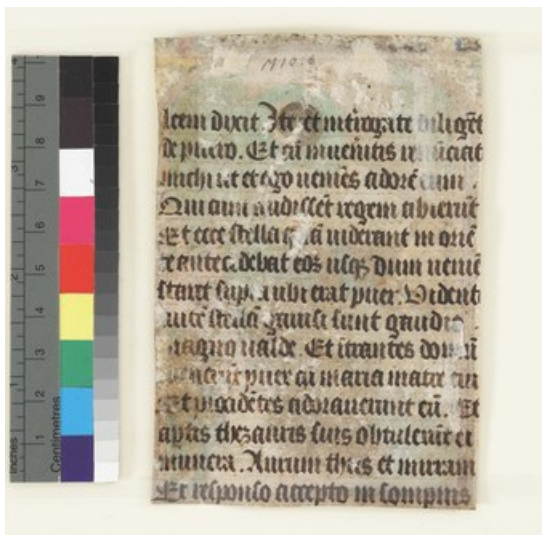 M10:6
lcem dixit. Ite et introgate diligēt
de puero. Et cū inuenitis renūciat
michi ut et ego ueniēs adorē eum.
Qui cum audissēt regem abierūt
Et ecce stella quā uiderant in oriē
te antecedebat eos usqꝫ dum ueniē
staret supra ubi erat puer. Uident
autē stellā gauisi sunt gaudio
magno ualde. Et itrantes domū
puerū cū maria matre eius
Et procidētes adorauerunt eū. Et
aptis thezauris suis obtulerūt ei
munera. Aurum thus et mirram
Et responso accepto in sompnis